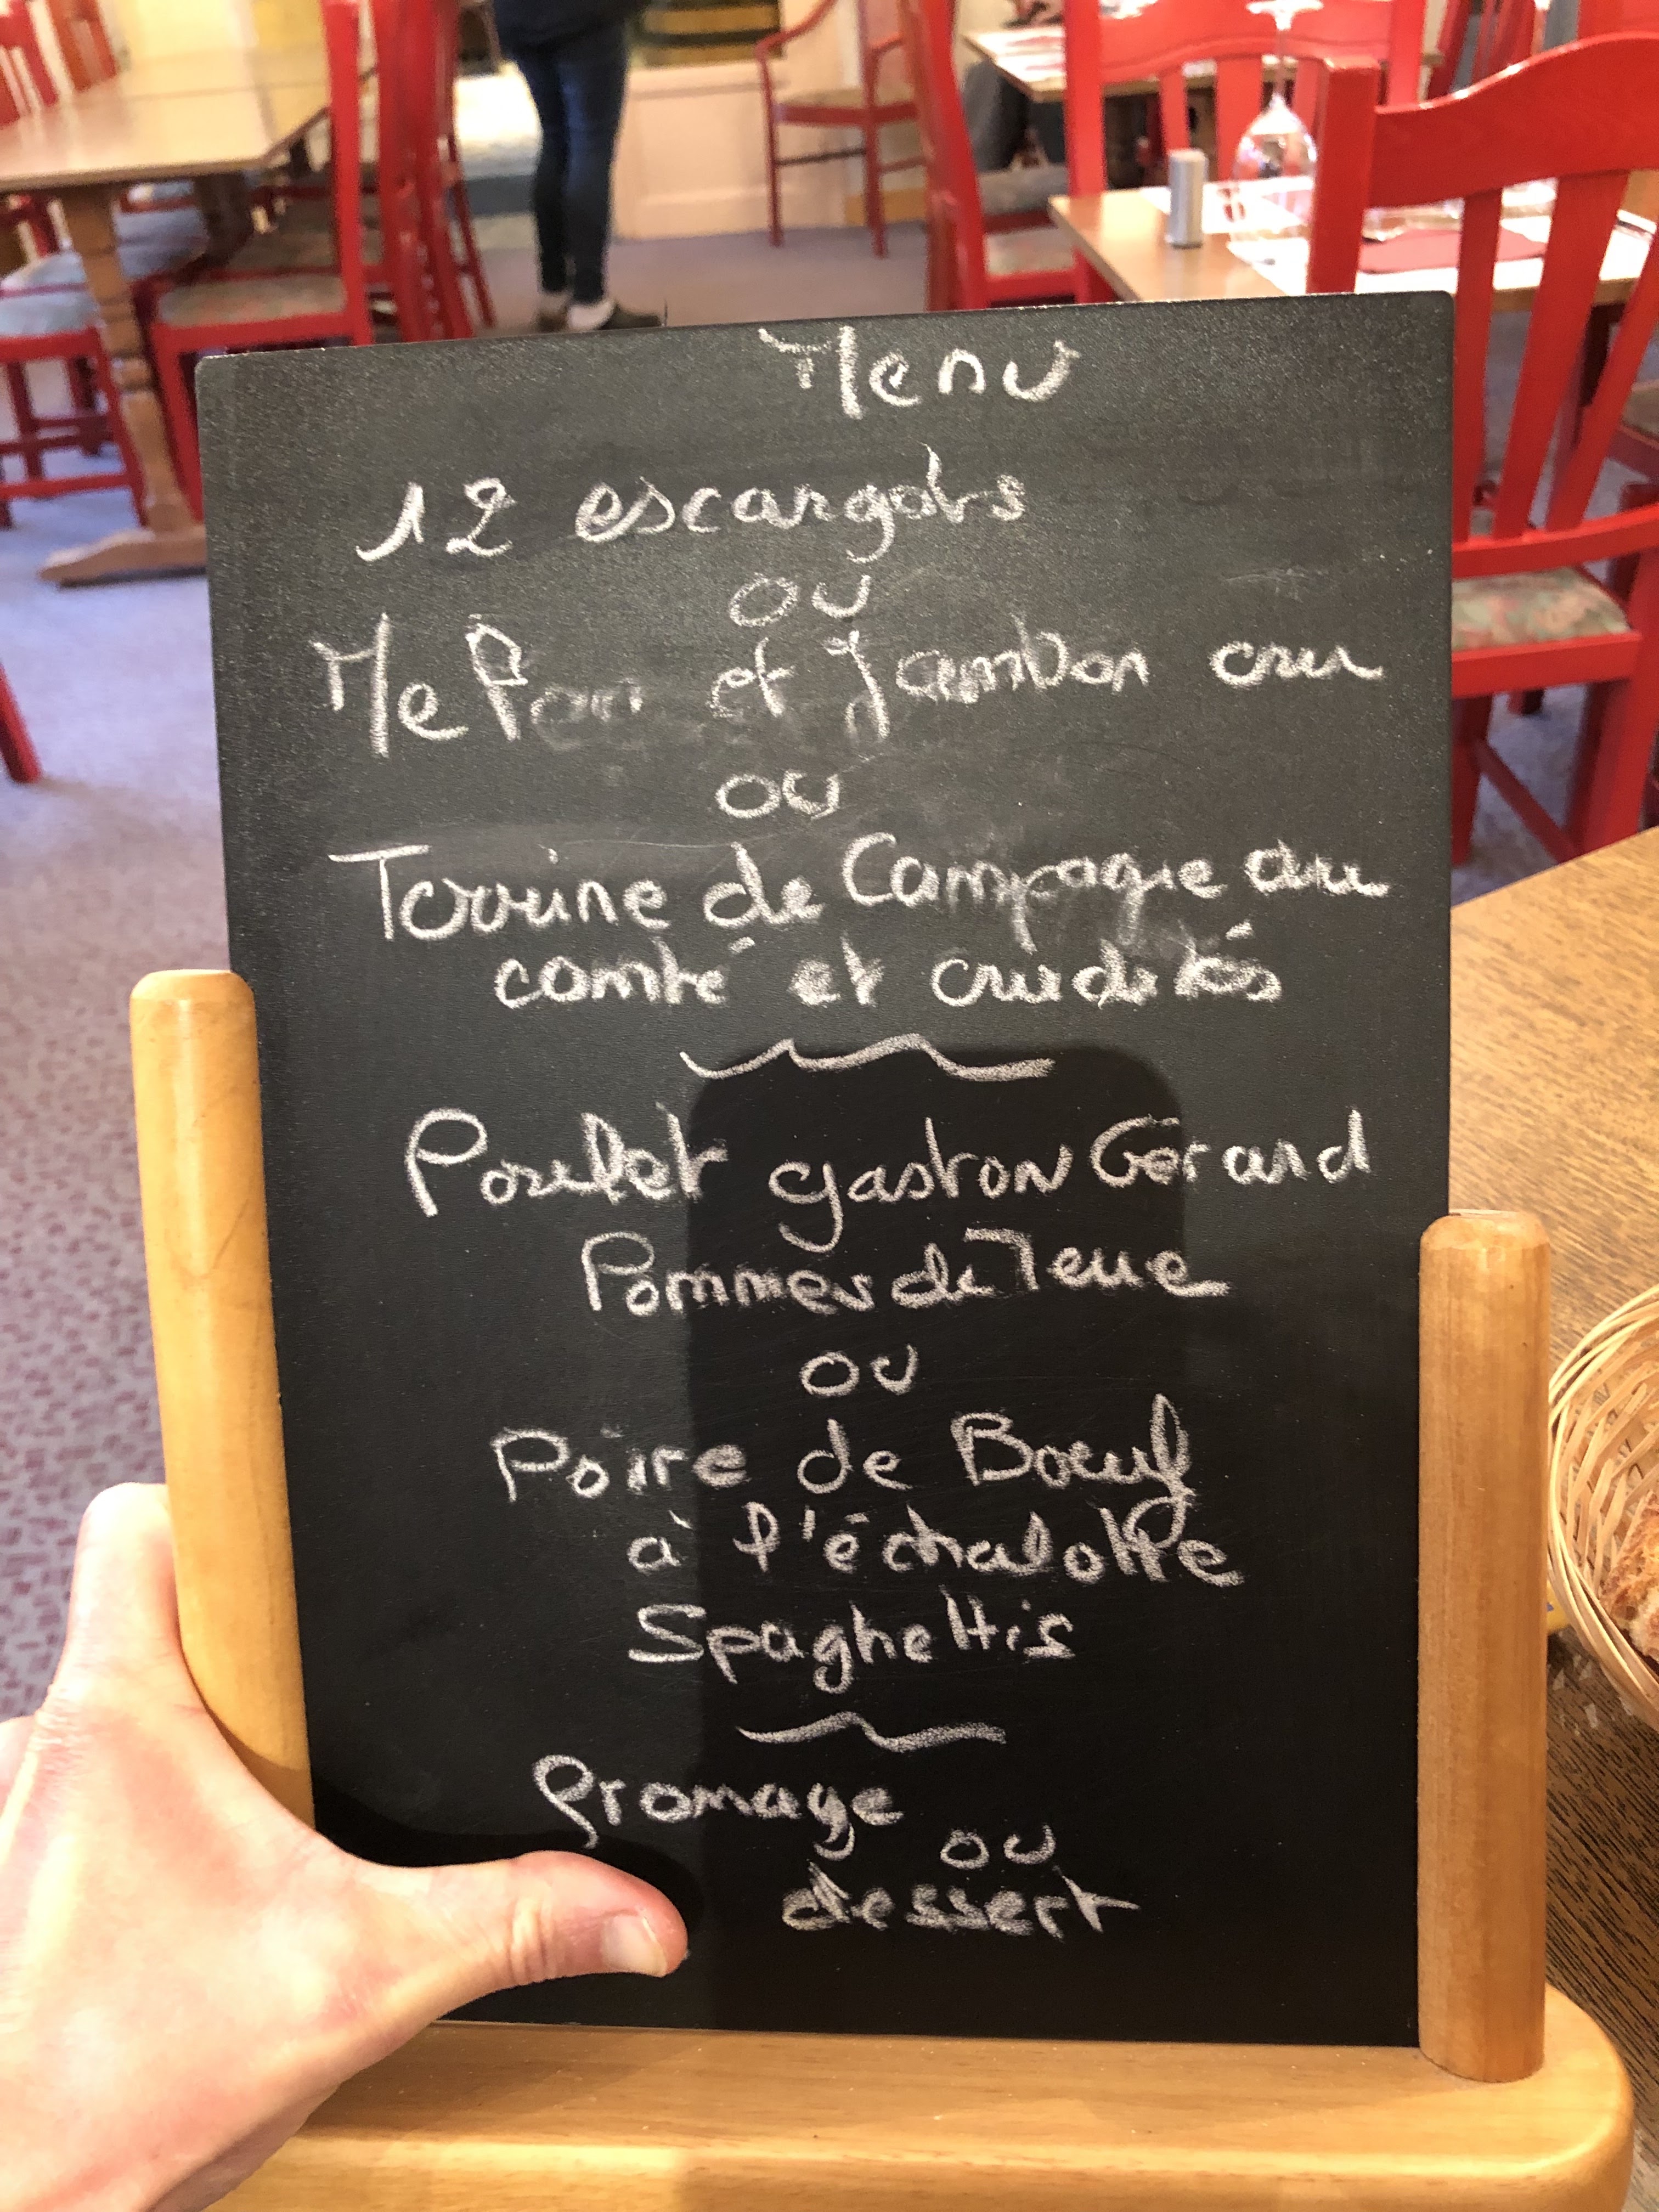 Menu
12 escargots
ou
Melon et Jambon cru
ou
Terrine de Campagne au
comté et crudités
Poulet gaston Gérard
Pommes de Terre
ou
Poire de Boeuf
à l'échalotte
Spaghettis
fromage
ou
dessert